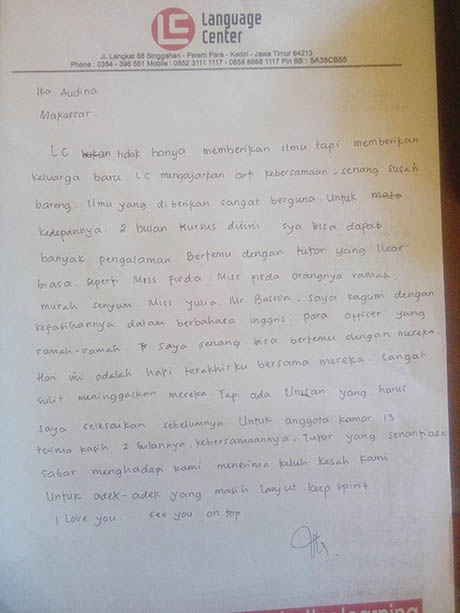 LC Language
Center
Jl. Langkat 88 Singgahan - Pelem Pare - Kediri - Jawa Timur 64213
Phone : 0354 - 396 581 Mobile : 0852 3111 1117 - 0856 8888 1117 Pin BB : 5A38CB55
Ika Audina
Makassar.
LC bukan tidak hanya memberikan ilmu tapi memberikan
keluarga baru. LC mengajarkan arti kebersamaan, senang susah
bareng. Ilmu yang diberikan sangat berguna. Untuk masa
kedepannya. 2 bulan kursus disini sya bisa dapat
banyak pengalaman. Bertemu dengan tutor yang luar
biasa. Seperti Miss Firda. Miss Firda orangnya ramah,
murah senyum. Miss Yulia, Mr. Basron, saya kagum dengan
kefasihannya dalam berbahasa inggris. Para Officer yang
ramah-ramah. Saya senang bisa bertemu dengan mereka.
Hari ini adalah hari terakhirku bersama mereka. Sangat
sulit meninggalkan mereka. Tapi ada urusan yang harus
saya selesaikan sebelumnya. Untuk anggota kamar 13
terima kasih 2 bulannya, kebersamaannya. Tutor yang senantiasa
sabar menghadapi kami menerima keluh kesah kami.
Untuk adek-adek yang masih lanjut. keep spirit
I love you. see you on top